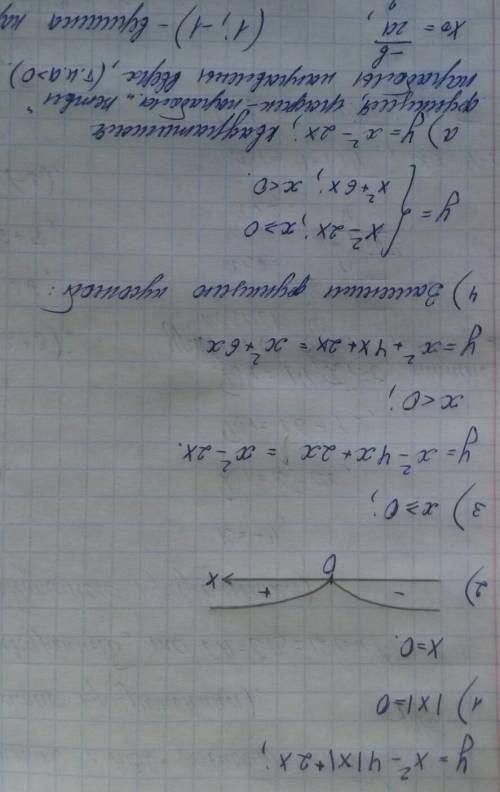 y = x² - 4|x| + 2x;
1) |x| = 0
x = 0.
2) - + 0 x
3) x ≥ 0;
y = x² - 4x + 2x = x² - 2x.
x < 0;
y = x² + 4x + 2x = x² + 6x.
4) Запишем функцию кусочной:
y = { x² - 2x; x ≥ 0
x² + 6x; x < 0.
а) y = x² - 2x; квадратичная
функция, график - парабола, ветви
параболы направлены вверх, (т.к. a>0).
x₀ = -b/2a; (1; -1) - вершина